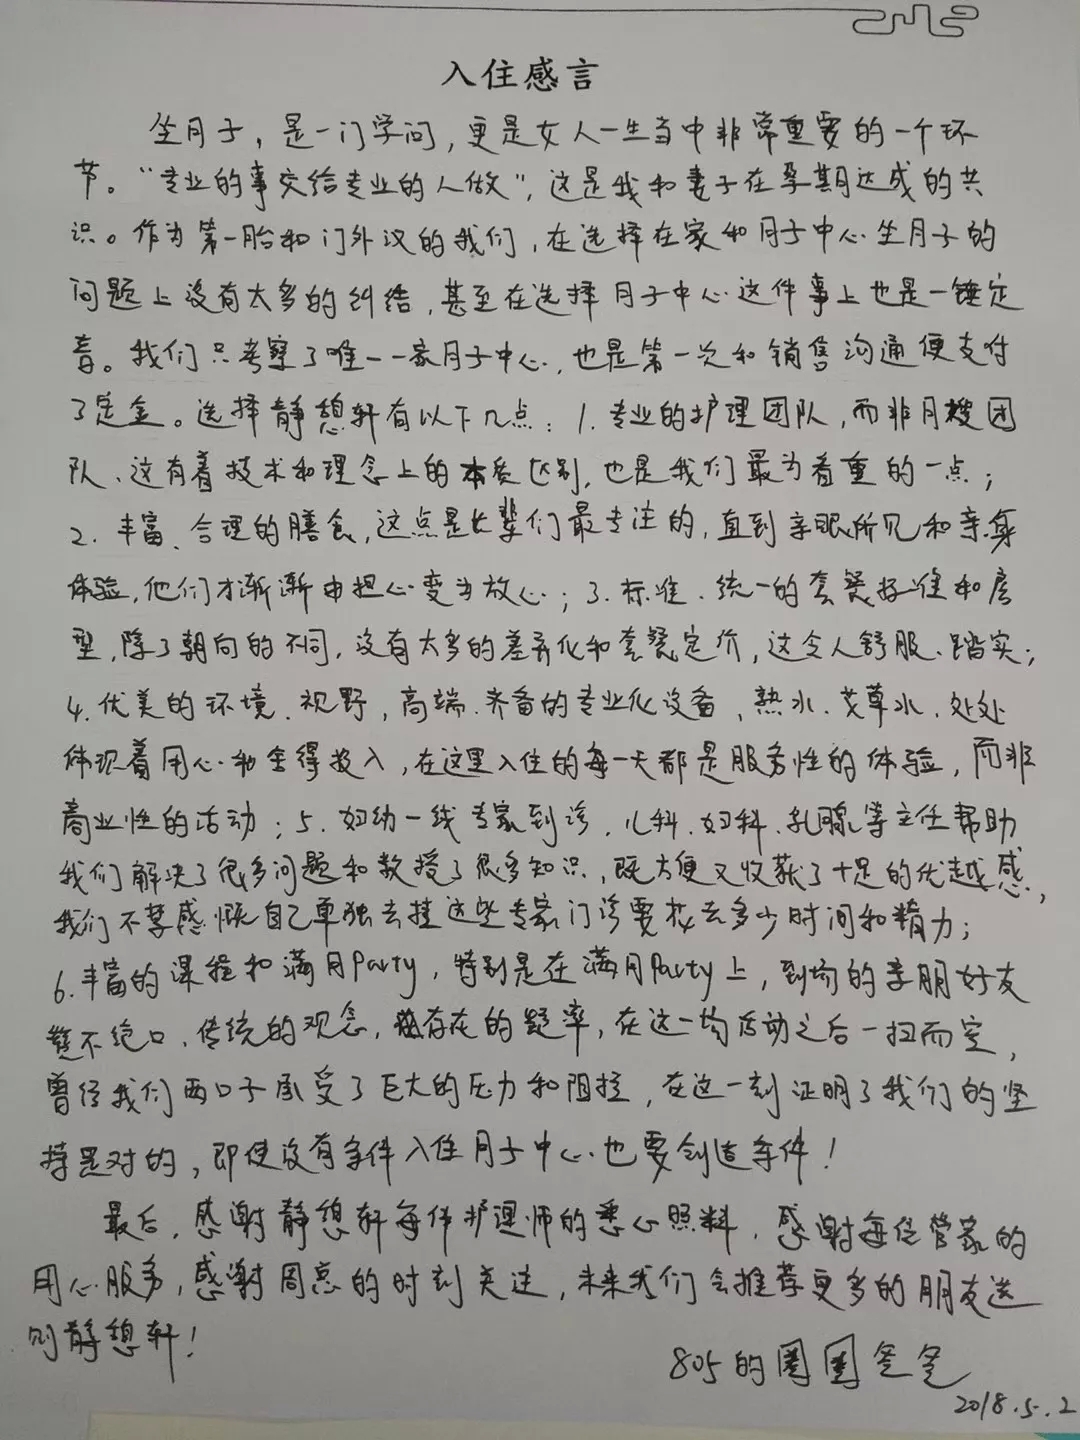 入住感言
坐月子，是一门学问，更是女人一生当中非常重要的一个环
节。“专业的事交给专业的人做”，这是我和妻子在孕期达成的共
识。作为第一胎和门外汉的我们，在选择在家和月子中心坐月子的
问题上没有太多的纠结，甚至在选择月子中心这件事上也是一锤定
音。我们只考察了唯一一家月子中心，也是第一次和销售沟通便支付
了定金。选择静憩轩有以下几点：1.专业的护理团队，而非月嫂团
队、这有着技术和理念上的本质区别，也是我们最为看重的一点；
2.丰富、合理的膳食，这点是长辈们最专注的，直到亲眼所见和亲身
体验，他们才渐渐由担心变为放心；3.标准、统一的套餐标准和房
型，除了朝向的不同，没有太多的差异化和套餐定价，这令人舒服、踏实；
4.优美的环境、视野，高端、齐备的专业化设备，热水、艾草水、处处
体现着用心和舍得投入，在这里入住的每一天都是服务性的体验，而非
商业性的活动；5.妇幼一线专家到诊，儿科、妇科、乳腺等主任帮助
我们解决了很多问题和教授了很多知识，既方便又收获了十足的优越感，
我们不禁感慨自己单独去挂这些专家门诊要花去多少时间和精力；
6.丰富的课程和满月Party，特别是在满月Party上，到场的亲朋好友
赞不绝口、传统的观念，存在的疑虑，在这一场活动之后一扫而空，
曾经我们两口子承受了巨大的压力和阻拦，在这一刻证明了我们的坚
持是对的，即使没有条件入住月子中心也要创造条件！
最后，感谢静憩轩每位护理师的悉心照料，感谢每位管家的
用心服务，感谢周总的时刻关注，未来我们会推荐更多的朋友送
到静憩轩！
805的圈圈爸爸
2018.5.2